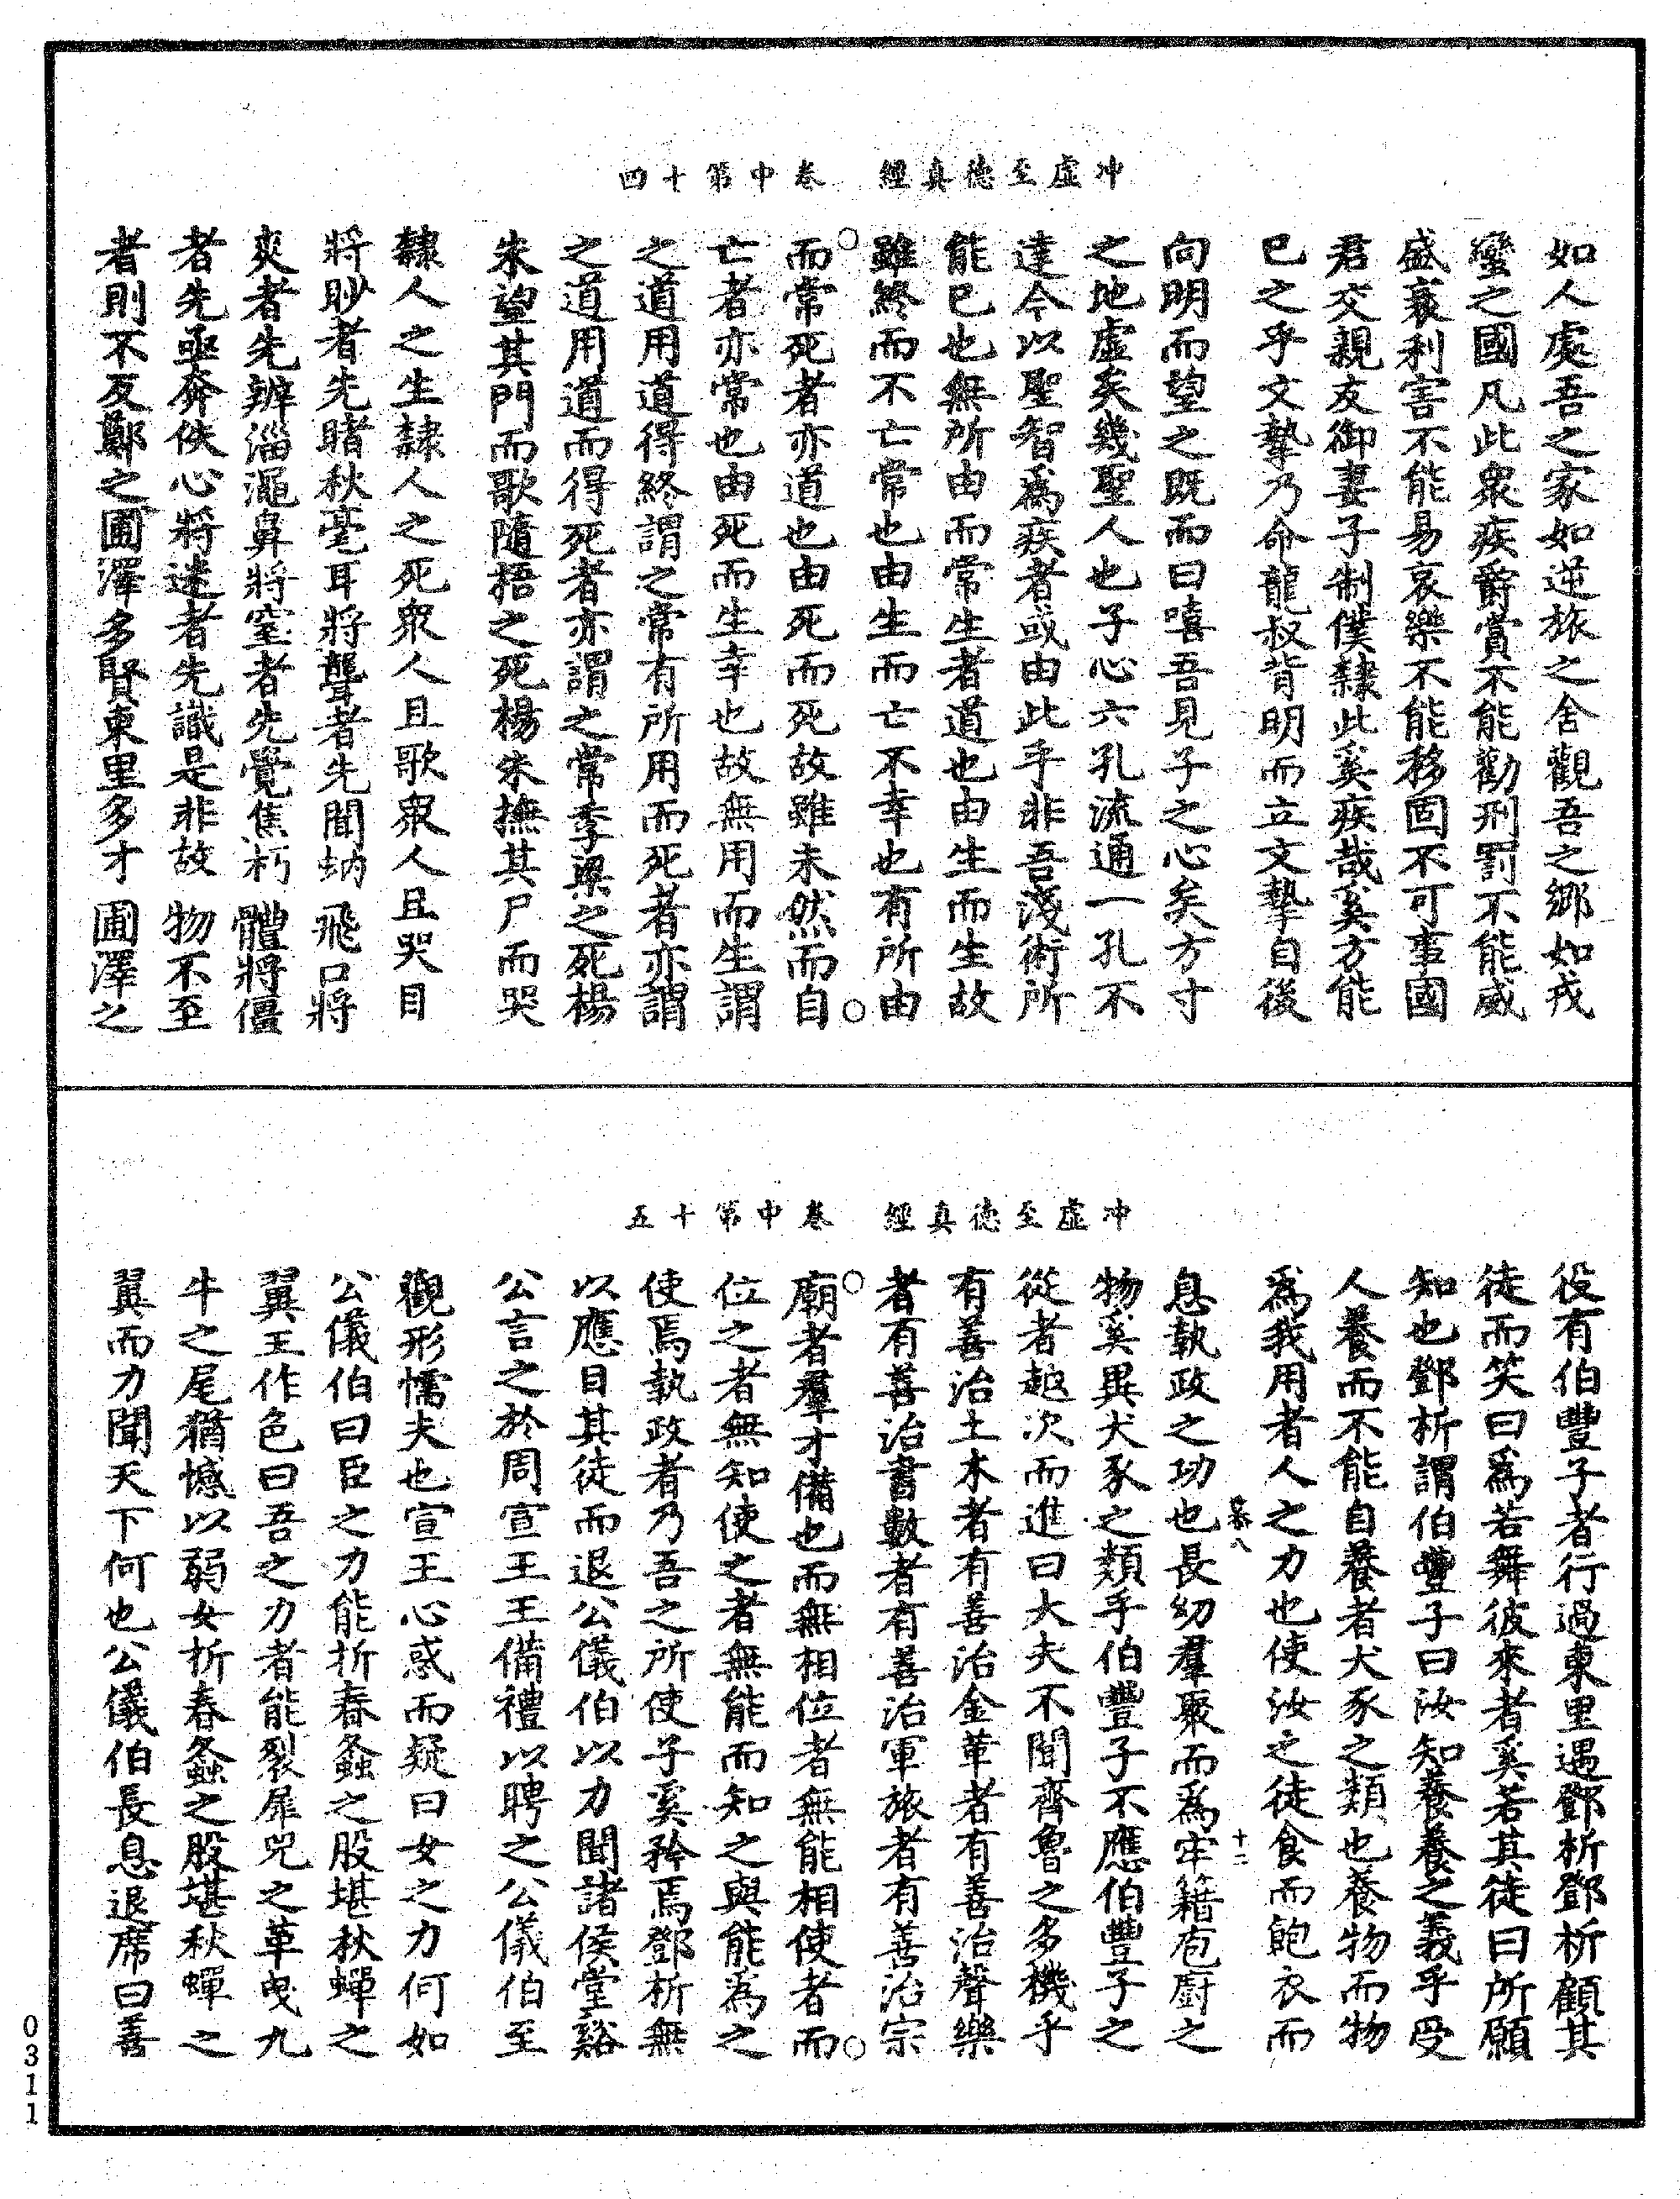 冲虛至德真經　卷中第十四
如人處吾之家如逆旅之舍觀吾之鄉如戎
蠻之國凡此衆疾爵賞不能勸刑罰不能威
盛衰利害不能易哀樂不能移固不可事國
君交親友御妻子制僕隸此奚疾哉奚方能
已之乎文摯乃命龍叔背明而立文摯自後
向明而望之既而曰嘻吾見子之心矣方寸
之地虛矣幾聖人也子心六孔流通一孔不
達今以聖智爲疾者或由此乎非吾淺術所
能已也無所由而常生者道也由生而生故
雖終而不亡常也由生而亡不幸也有所由
而常死者亦道也由死而死故雖未然而自
亡者亦常也由死而生幸也故無用而生謂
之道用道得終謂之常有所用而死者亦謂
之道用道而得死者亦謂之常季梁之死楊
朱望其門而歌隨梧之死楊朱撫其尸而哭
隸人之生隸人之死衆人且歌衆人且哭目
將眇者先睹秋毫耳將聾者先聞蚋飛口將
爽者先辨淄澠鼻將窒者先覺焦朽體將僵
者先亟奔佚心將迷者先識是非故物不至
者則不反鄭之圃澤多賢東里多才圃澤之
冲虛至德真經　卷中第十五
役有伯豐子者行過東里遇鄧析鄧析顧其
徒而笑曰爲若舞彼來者奚若其徒曰所願
知也鄧析謂伯豐子曰汝知養養之義乎受
人養而不能自養者犬豕之類也養物而物
爲我用者人之力也使汝之徒食而飽衣而
息執政之功也長幼羣聚而爲牢籍庖廚之
物奚異犬豕之類乎伯豐子不應伯豐子之
從者越次而進曰大夫不聞齊魯之多機乎
有善治土木者有善治金革者有善治聲樂
者有善治書數者有善治軍旅者有善治宗
廟者羣才備也而無相位者無能相使者而
位之者無知使之者無能而知之與能爲之
使焉執政者乃吾之所使子奚矜焉鄧析無
以應目其徒而退公儀伯以力聞諸侯堂谿
公言之於周宣王王備禮以聘之公儀伯至
觀形懦夫也宣王心惑而疑曰女之力何如
公儀伯曰臣之力能折春螽之股堪秋蟬之
翼王作色曰吾之力者能裂犀兕之革曳九
牛之尾猶憾以弱女折春螽之股堪秋蟬之
翼而力聞天下何也公儀伯長息退席曰善
八
十二
0311